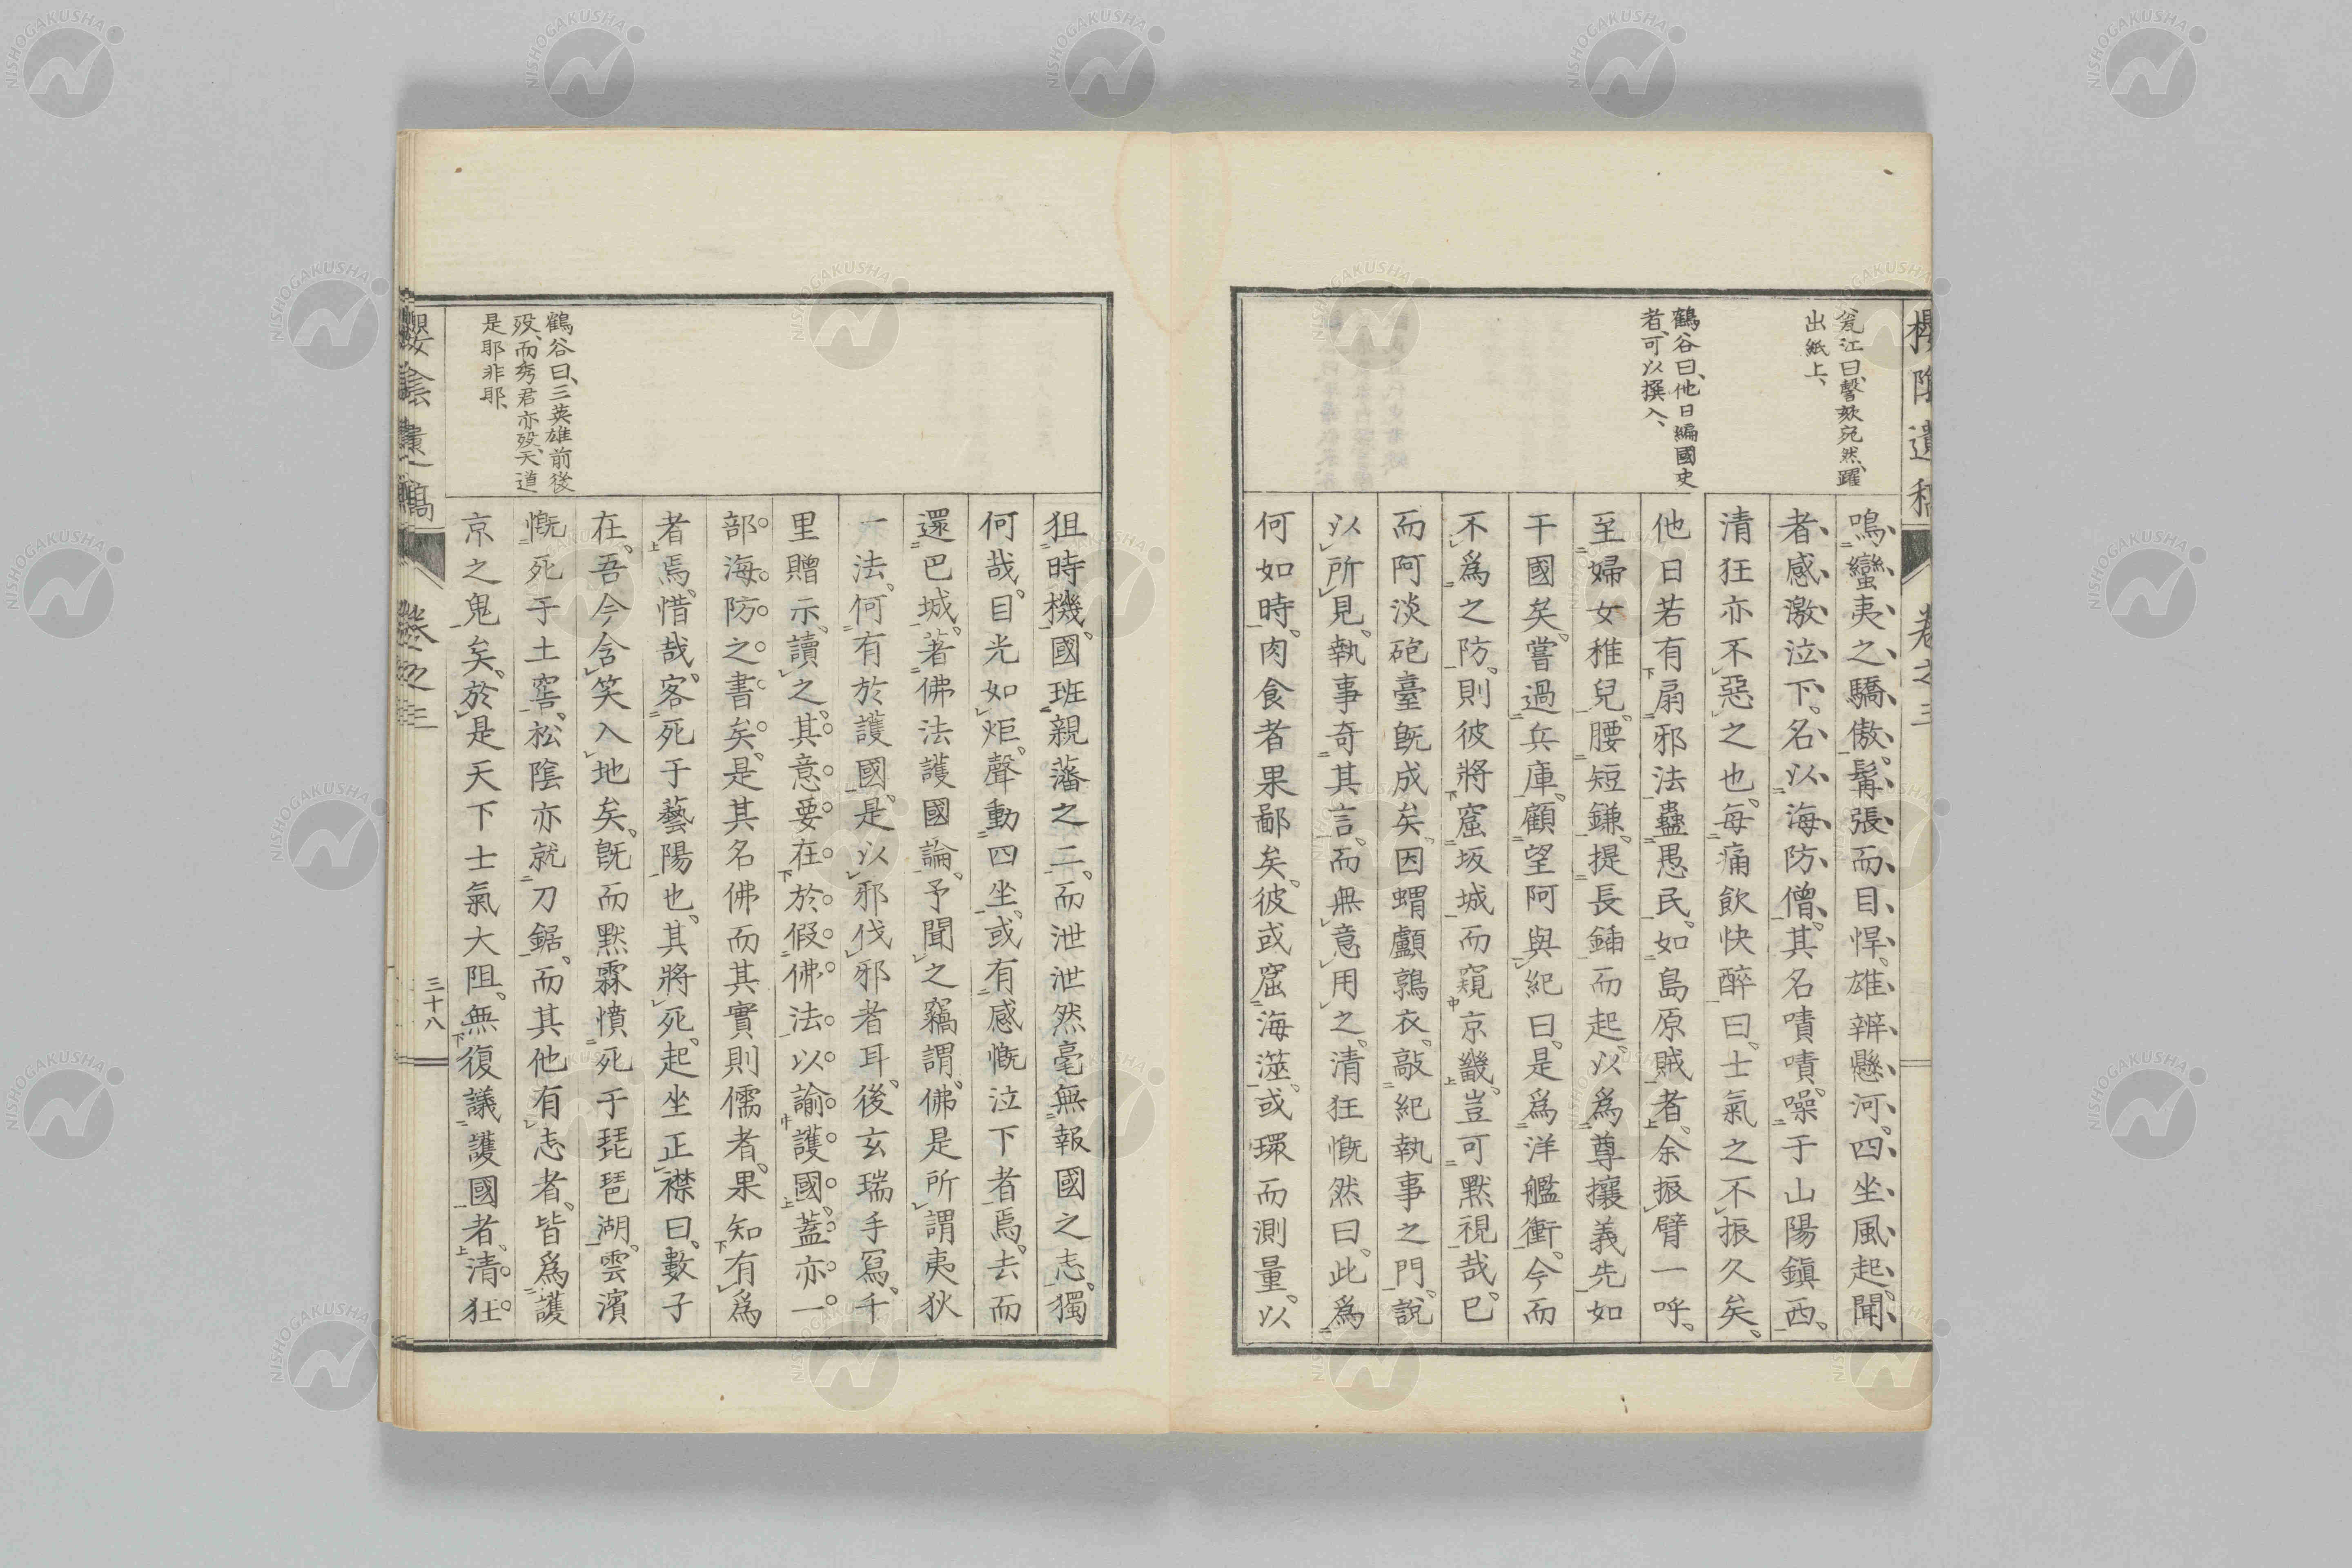 櫻陰遺稿
卷之三
瓮江曰、謦欬宛然、躍
出紙上、
鶴谷曰、他日編國史
者、可以撰入、
鳴蠻夷之驕傲。髯張而目悍。雄辨懸河。四坐風起、聞
者感激泣下。名以海防僧。其名嘖嘖。噪于山陽鎭西。
清狂亦不惡之也。每痛飲快醉曰。士氣之不振久矣。
他日若有扇邪法蠱愚民。如島原賊者。余振臂一呼。
至婦女稚兒。腰短鎌。提長鍤而起。以爲尊攘義先如
干國矣。嘗過兵庫。顧望阿與紀曰。是爲洋艦衝。今而
不爲之防。則彼將窟坂城而窺京畿。豈可默視哉。已
而阿淡砲臺既成矣。因蝟顱鶉衣。敲紀執事之門。說
以所見。執事奇其言。而無意用之。清狂慨然曰。此爲
何如時。肉食者果鄙矣。彼或窟海澨。或環而測量。以
狃時機。國班親藩之二。而泄泄然毫無報國之志。獨
何哉。目光如炬。聲動四坐。或有感慨泣下者焉。去而
還巴城。著佛法護國論。予聞之竊謂。佛是所謂夷狄
一法。何有於護國。是以邪伐邪者耳。後玄瑞手寫。千
里贈示。讀之。其意要在於假佛法以諭護國。蓋亦一
部海防之書矣。是其名佛而其實則儒者。果知有爲
者焉。惜哉。客死于藝陽也。其將死。起坐正襟曰。數子
在。吾今含笑入地矣。既而默霖憤死于琵琶湖。雲濱
慨死于土窖。松陰亦就刀鋸。而其他有志者。皆爲護
京之鬼矣。於是天下士氣大阻。無復議護國者。清狂
鶴谷曰、三英雄前後
歿、而秀君亦歿、天道
是耶非耶、
櫻陰遺稿
卷之三
三十八